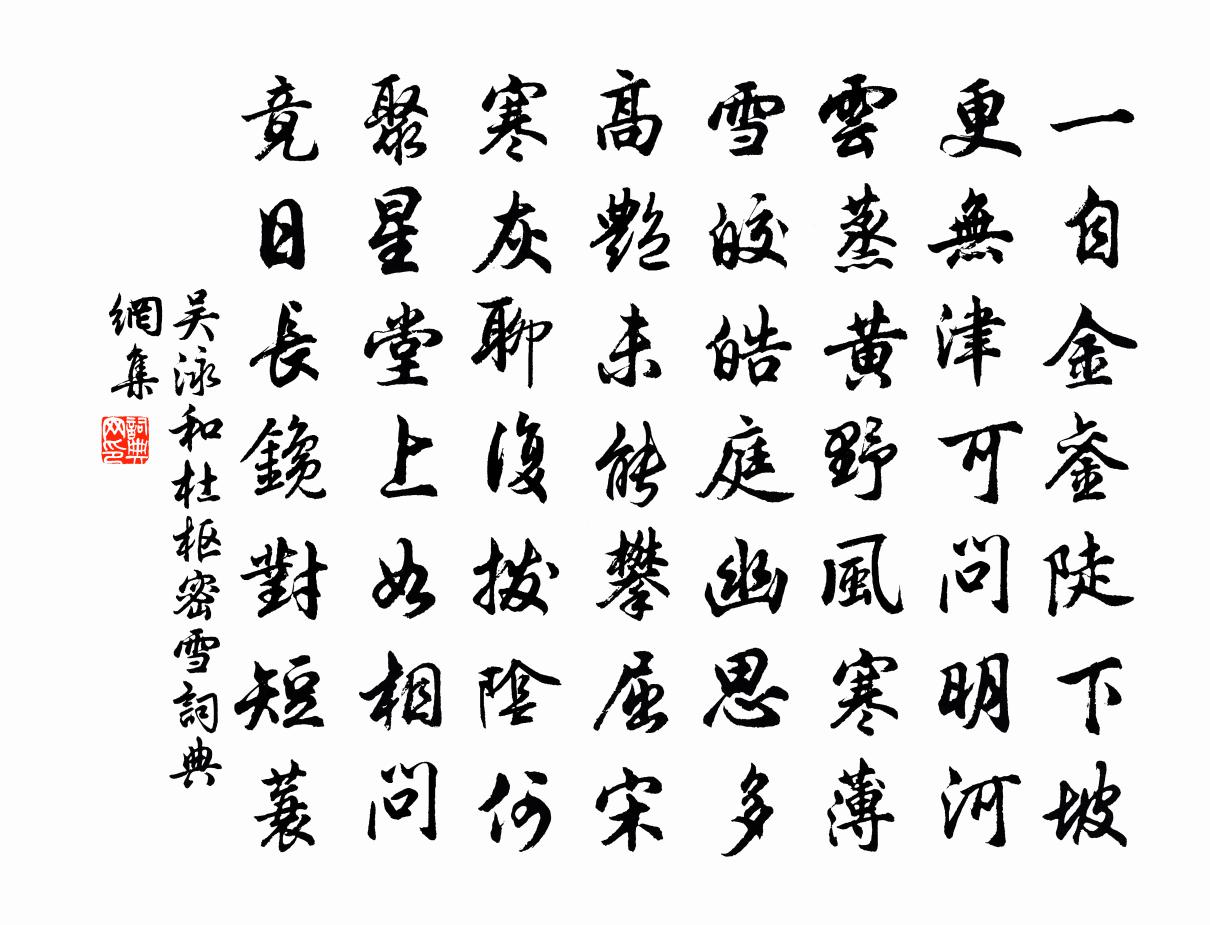 一自金銮陡下坡
更無津可問明河
雲蒸黃野風寒薄
雪皎皓庭幽思多
高艷未能攀屈宋
寒灰聊復撥陰何
聚星堂上如相問
竟日長鑱對短蓑
吴泳和杜枢密雪詞典
網集
詞典
网印